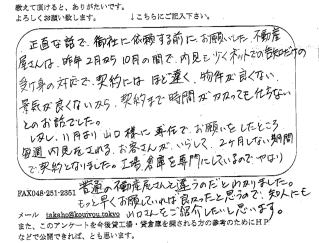 教えて頂けると、ありがたいです。
よろしくお願い致します。 ↓こちらにご記入下さい。
正直な話で、御社に依頼する前にお願いした不動産
屋さんは、昨年2月から10月の間で、内見も少くネットでの告知だけの
受け身の対応で、契約にはほど遠く、物件が良くない、
景気が良くないから、契約まで時間がかかっても仕方ない
との お話でした。
しかし、11月より山口様に専任で、お願いをしたところ
毎週、内見を される、お客さんが、いらして、2ヶ月しない期間
で契約となりました。工場、倉庫を専門にしているので、やはり
FAX048-251-2351 普通の不動産屋さんと違うのだとわかりました。
もっと早くお願いしていれば良かったと思うので、知人にも
メール takaho@koujyou.tokyo 山口さんをご紹介したいと思います。
また、このアンケートを今後貸工場・貸倉庫を探される方の参考のためにHP
などで公開できれば、とも思います。